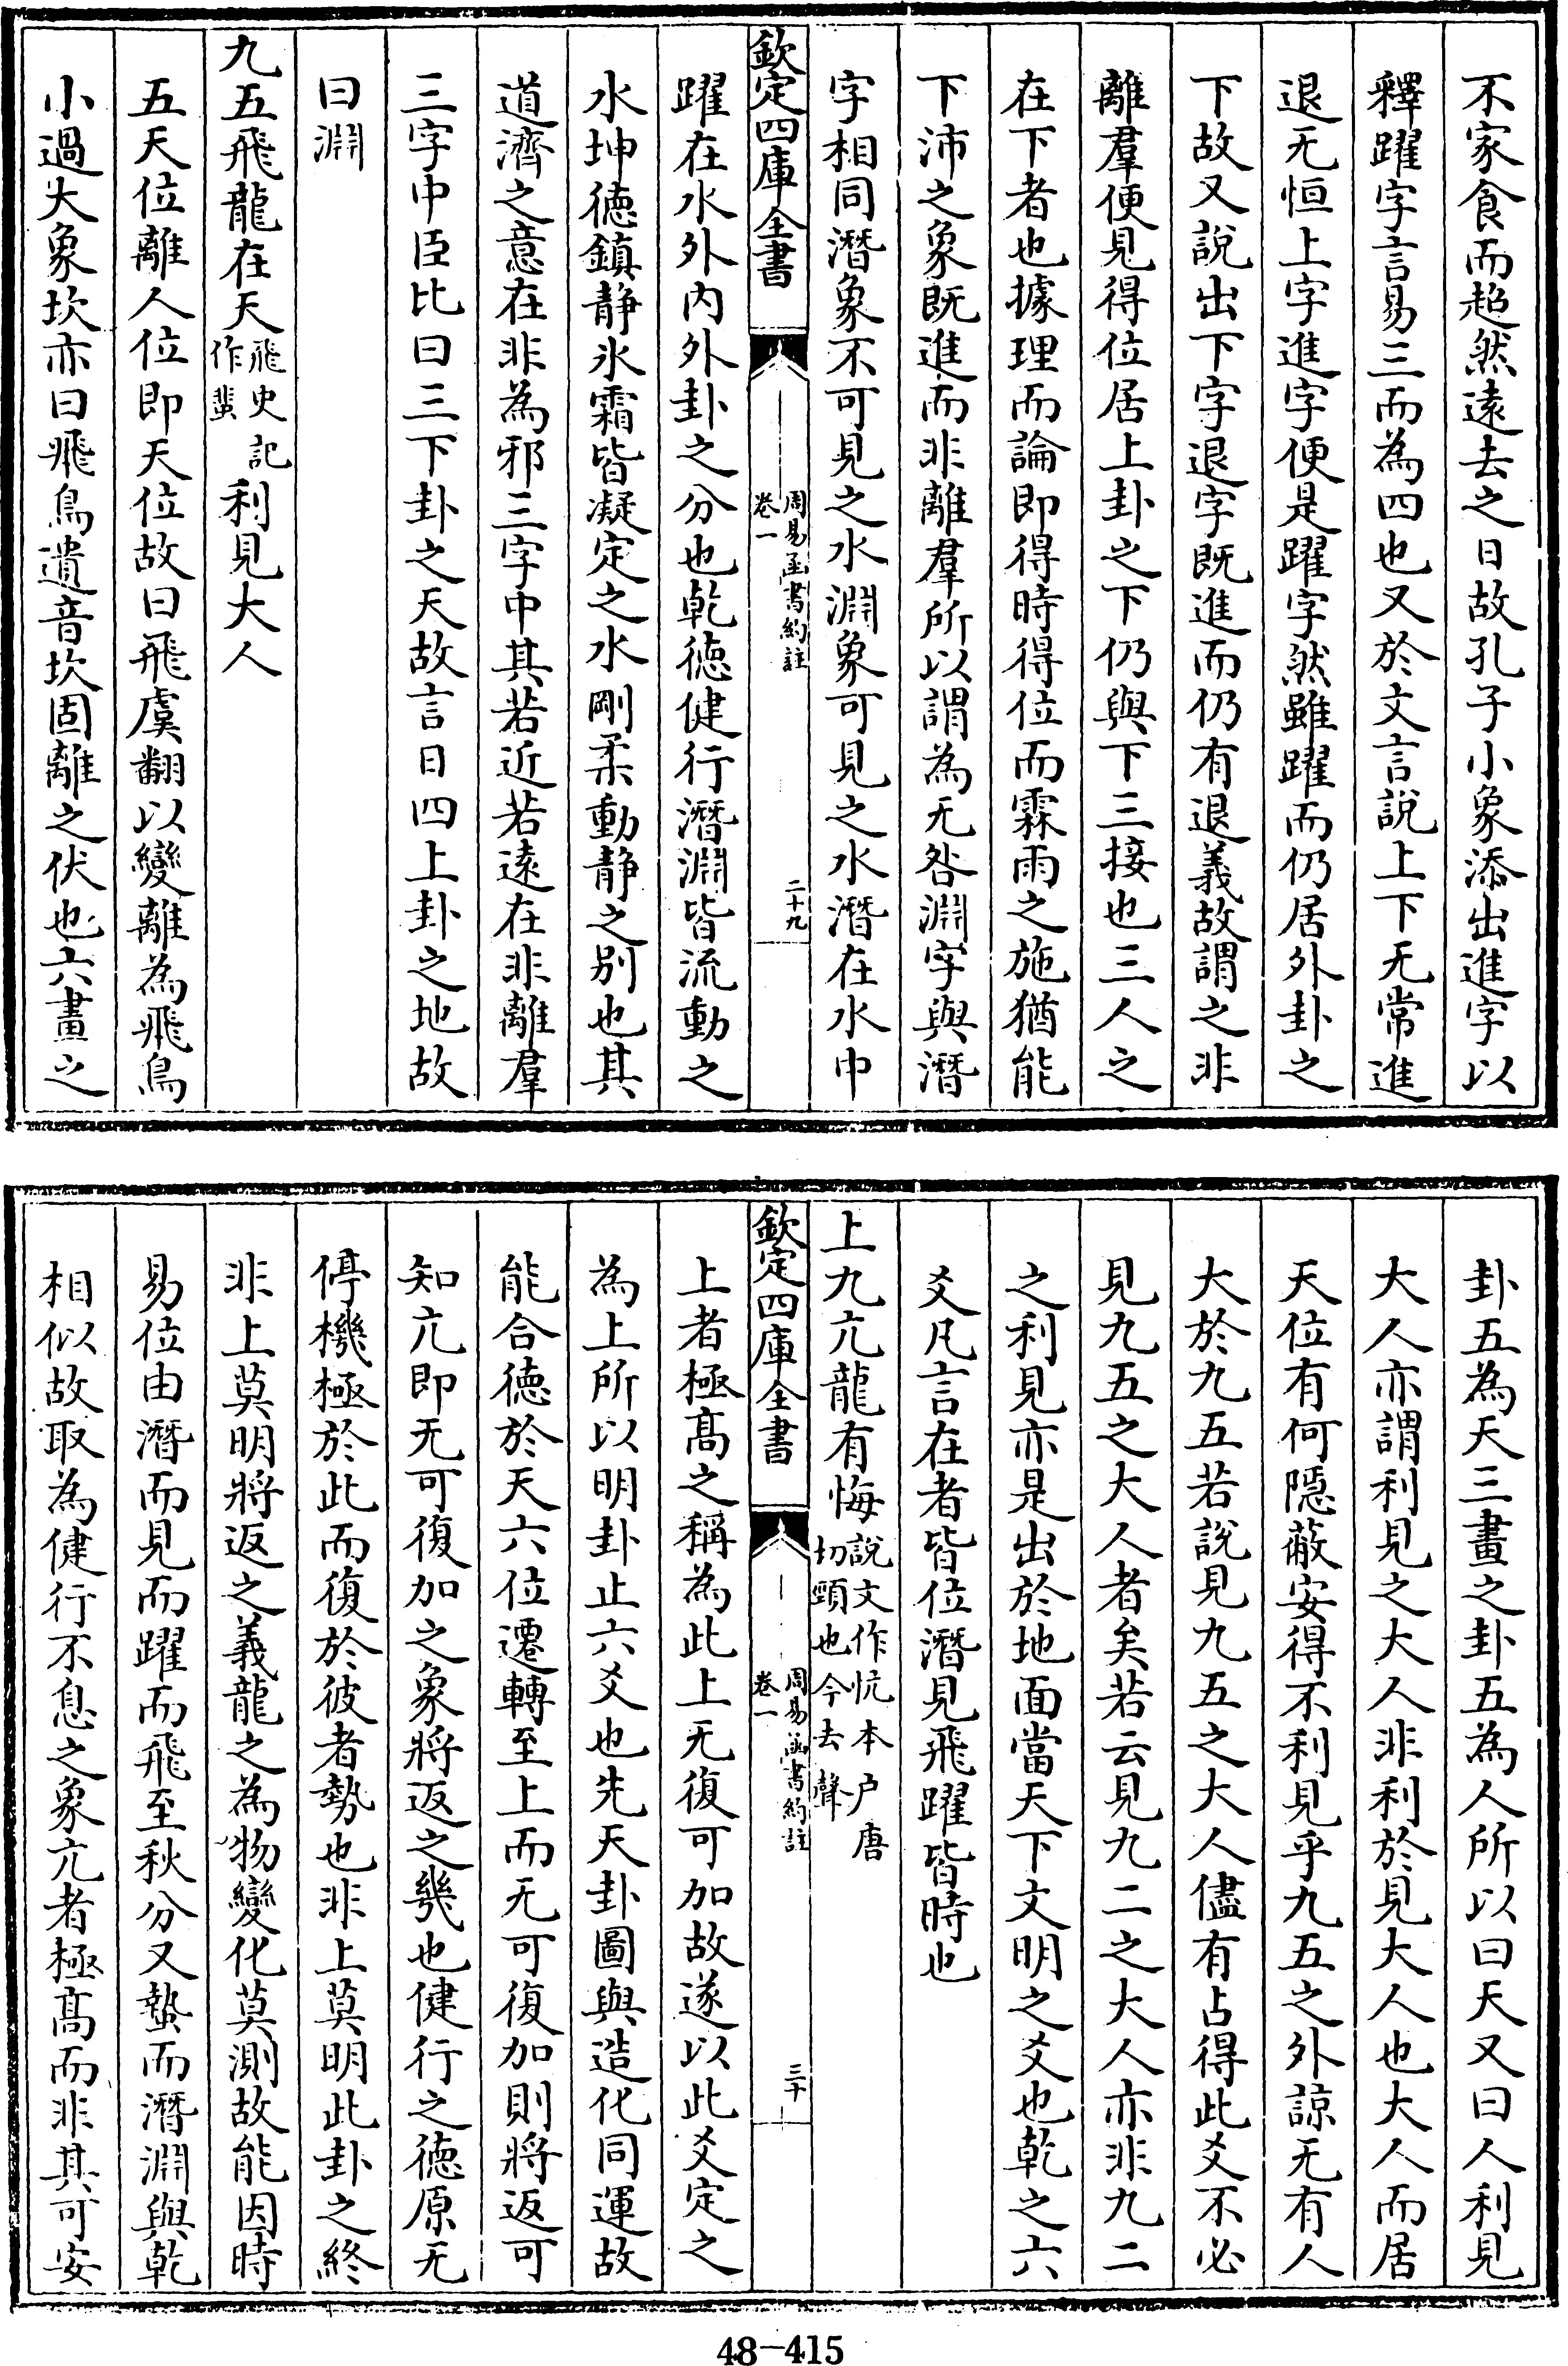 不家食而超然遠去之日故孔子小象添出進字以
釋躍字言易三而為四也又於文言說上下无常進
退无恒上字進字便是躍字然雖躍而仍居外卦之
下故又說出下字退字既進而仍有退義故謂之非
離羣便見得位居上卦之下仍與下三接也三人之
在下者也據理而論即得時得位而霖雨之施猶能
下沛之象既進而非離羣所以謂為无咎淵字與潛
字相同潛象不可見之水淵象可見之水潛在水中
欽定四庫全書
周易函書約註
卷一
二十九
躍在水外内外卦之分也乾德健行潛淵皆流動之
水坤德鎮静氷霜皆凝定之水剛柔動静之别也其
道濟之意在非為邪三字中其若近若遠在非離羣
三字中臣比曰三下卦之天故言日四上卦之地故
曰淵
九五飛龍在天飛史記作蜚利見大人
五天位離人位即天位故曰飛虞翻以變離為飛鳥
小過大象坎亦曰飛鳥遺音坎固離之伏也六畫之
卦五為天三畫之卦五為人所以曰天又曰人利見
大人亦謂利見之大人非利於見大人也大人而居
天位有何隱蔽安得不利見乎九五之外諒无有人
大於九五若說見九五之大人儘有占得此爻不必
見九五之大人者矣若云見九二之大人亦非九二
之利見亦是出於地面當天下文明之爻也乾之六
爻凡言在者皆位潛見飛躍皆時也
上九亢龍有悔說文作忼本户唐切頸也今去聲
欽定四庫全書
周易函書約註
卷一
三十
上者極髙之稱為此上无復可加故遂以此爻定之
為上所以明卦止六爻也先天卦圖與造化同運故
能合德於天六位遷轉至上而无可復加則將返可
知亢即无可復加之象將返之幾也健行之德原无
停機極於此而復於彼者勢也非上莫明此卦之終
非上莫明將返之義龍之為物變化莫測故能因時
易位由潛而見而躍而飛至秋分又蟄而潛淵與乾
相似故取為健行不息之象亢者極髙而非其可安
48-415